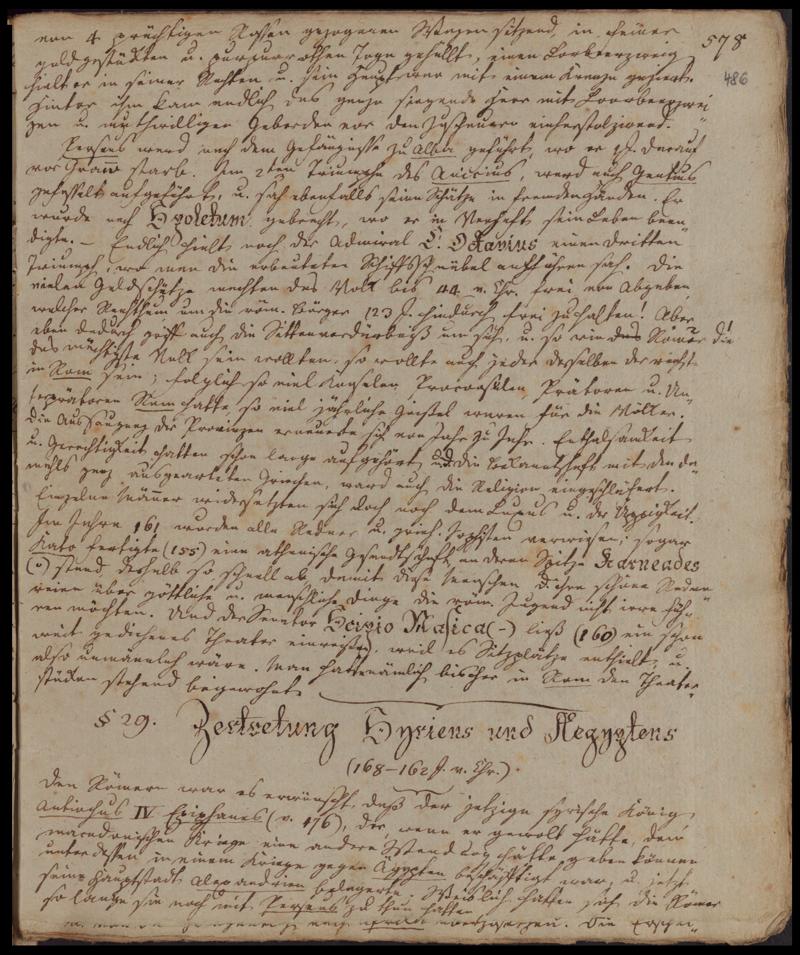 578
486
von 4 prächtigen Rossen gezogenen Wagen sitzend, in einer
goldgestickten u. purpurrothen Toga gehüllt, einen Lorbeerzweig
hielt er in seiner Rechten u. sein Haupt war mit einem Kranze geziert.
Hinter ihm kam endlich das ganze siegende Heer mit Loorbeerzwei
gen u. muthwilligen Geberden vor den Zuschauern einherstolzierend.
Perseus ward nach dem Gefängnisse zu Alba geführt, wo er darauf
vor Gram starb. Im 2ten Triumphe des Anicius, ward auch Gentius
gefesselt aufgeführt, u. sah ebenfalls seine Schätze in fremden Händen. Er
wurde nach Spoletum gebracht, wo er in Verhaft sein Leben been
digte. – Endlich hielt noch der Admiral C. Oktavius einen dritten
Triumph, wo man die erbeuteten Schiffsschnäbel aufführen sah. Die
vielen Geldschätze machten das Volk bis 44 v. Chr. frei von Abgaben
welcher Reichthum um die röm. Bürger 123 J. hindurch frei zu halten! Aber
eben dadurch griff auch die Sittenverderbniß um sich, u. so wie das Römer die
das mächtigste Volk sein wollten, so wollte auch jeder derselben der reichste
in Rom sein; folglich so viel Konsulen, Proconsulen, Prätoren u. Un
terprätoren Rom hatte, so viel jährliche Geißel waren für die Völker.
Die Aussaugung der Provinzen erneuerte sich von Jahr zu Jahr. Enthaltsamkeit
u. Gerechtigkeit hatten schon lange aufgehört, und die Bekanntschaft mit den da
mahls ganz ausgearteten Griechen, ward auch die Religion eingeschläfert.
Einzelne Männer widersetzten sich doch noch dem Luxus u. der Üppigkeit.
Im Jahre 161 wurden alle Redner u. griech. Sophisten verwiesen; sogar
Kato fertigte (155) eine athenische Gesandtschaft, an deren Spitze Karneades
stand, deshalb so schnell ab, damit diese Menschen durch ihre schöne Redne
reien über göttliche u. menschliche Dinge die röm. Jugend nicht irre füh
ren möchten. Und der Senator Scipio Nasica (–) ließ (160) ein schon
weit gediehenes Theater einreißen, weil es Sitzplätze enthielt, u.
also unmännlich wäre. Man hatte nämlich bisher in Rom den Theater
stücken stehend beigewohnt.
§ 29. Zerrüttung Syriens und Aegyptens
(168–162 J. v. Chr.).
Den Römern war es erwünscht, daß der jetzige syrische König
Antiochus IV Epiphanes (v. 176), der, wenn er gewollt hätte, dem
macedonischen Kriege eine andere Wendung hätte geben können
unterdessen in einem Kriege gegen Ägypten beschäftigt war, u. jetzt
seine Hauptstadt Alexandrien belagerte. Weislich hatten sich die Römer
so lange sie noch mit Perseus zu thun hatten